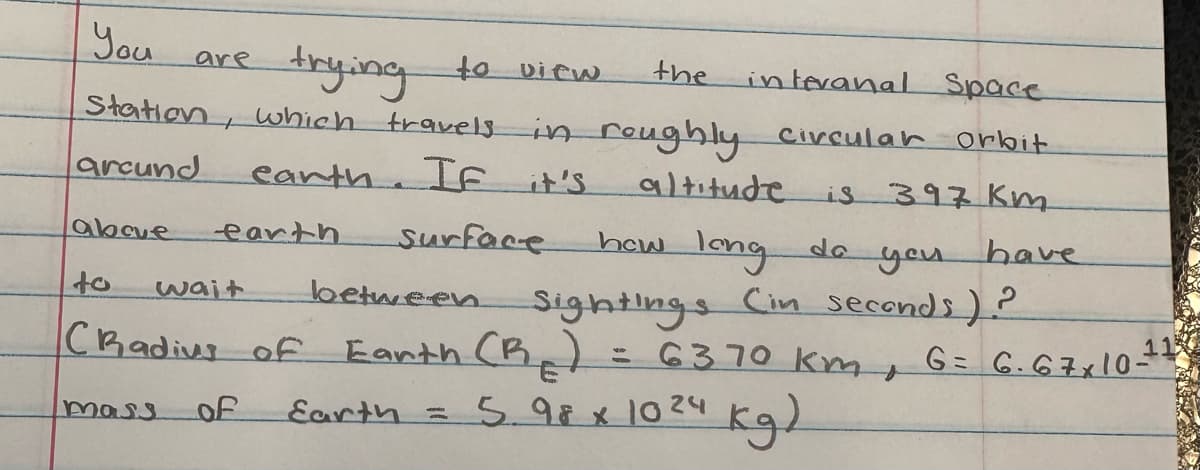 You are trying to view the intevanal Space
Station, which travels in roughly circular orbit
around earth. IF it's altitude is 397 Km
above earth surface how long do you have
to wait between sightings (in seconds)?
(Radius of Earth (R_E) = 6370 km, G = 6.67x10-11
mass of Earth = 5.98 x 10^24 kg)